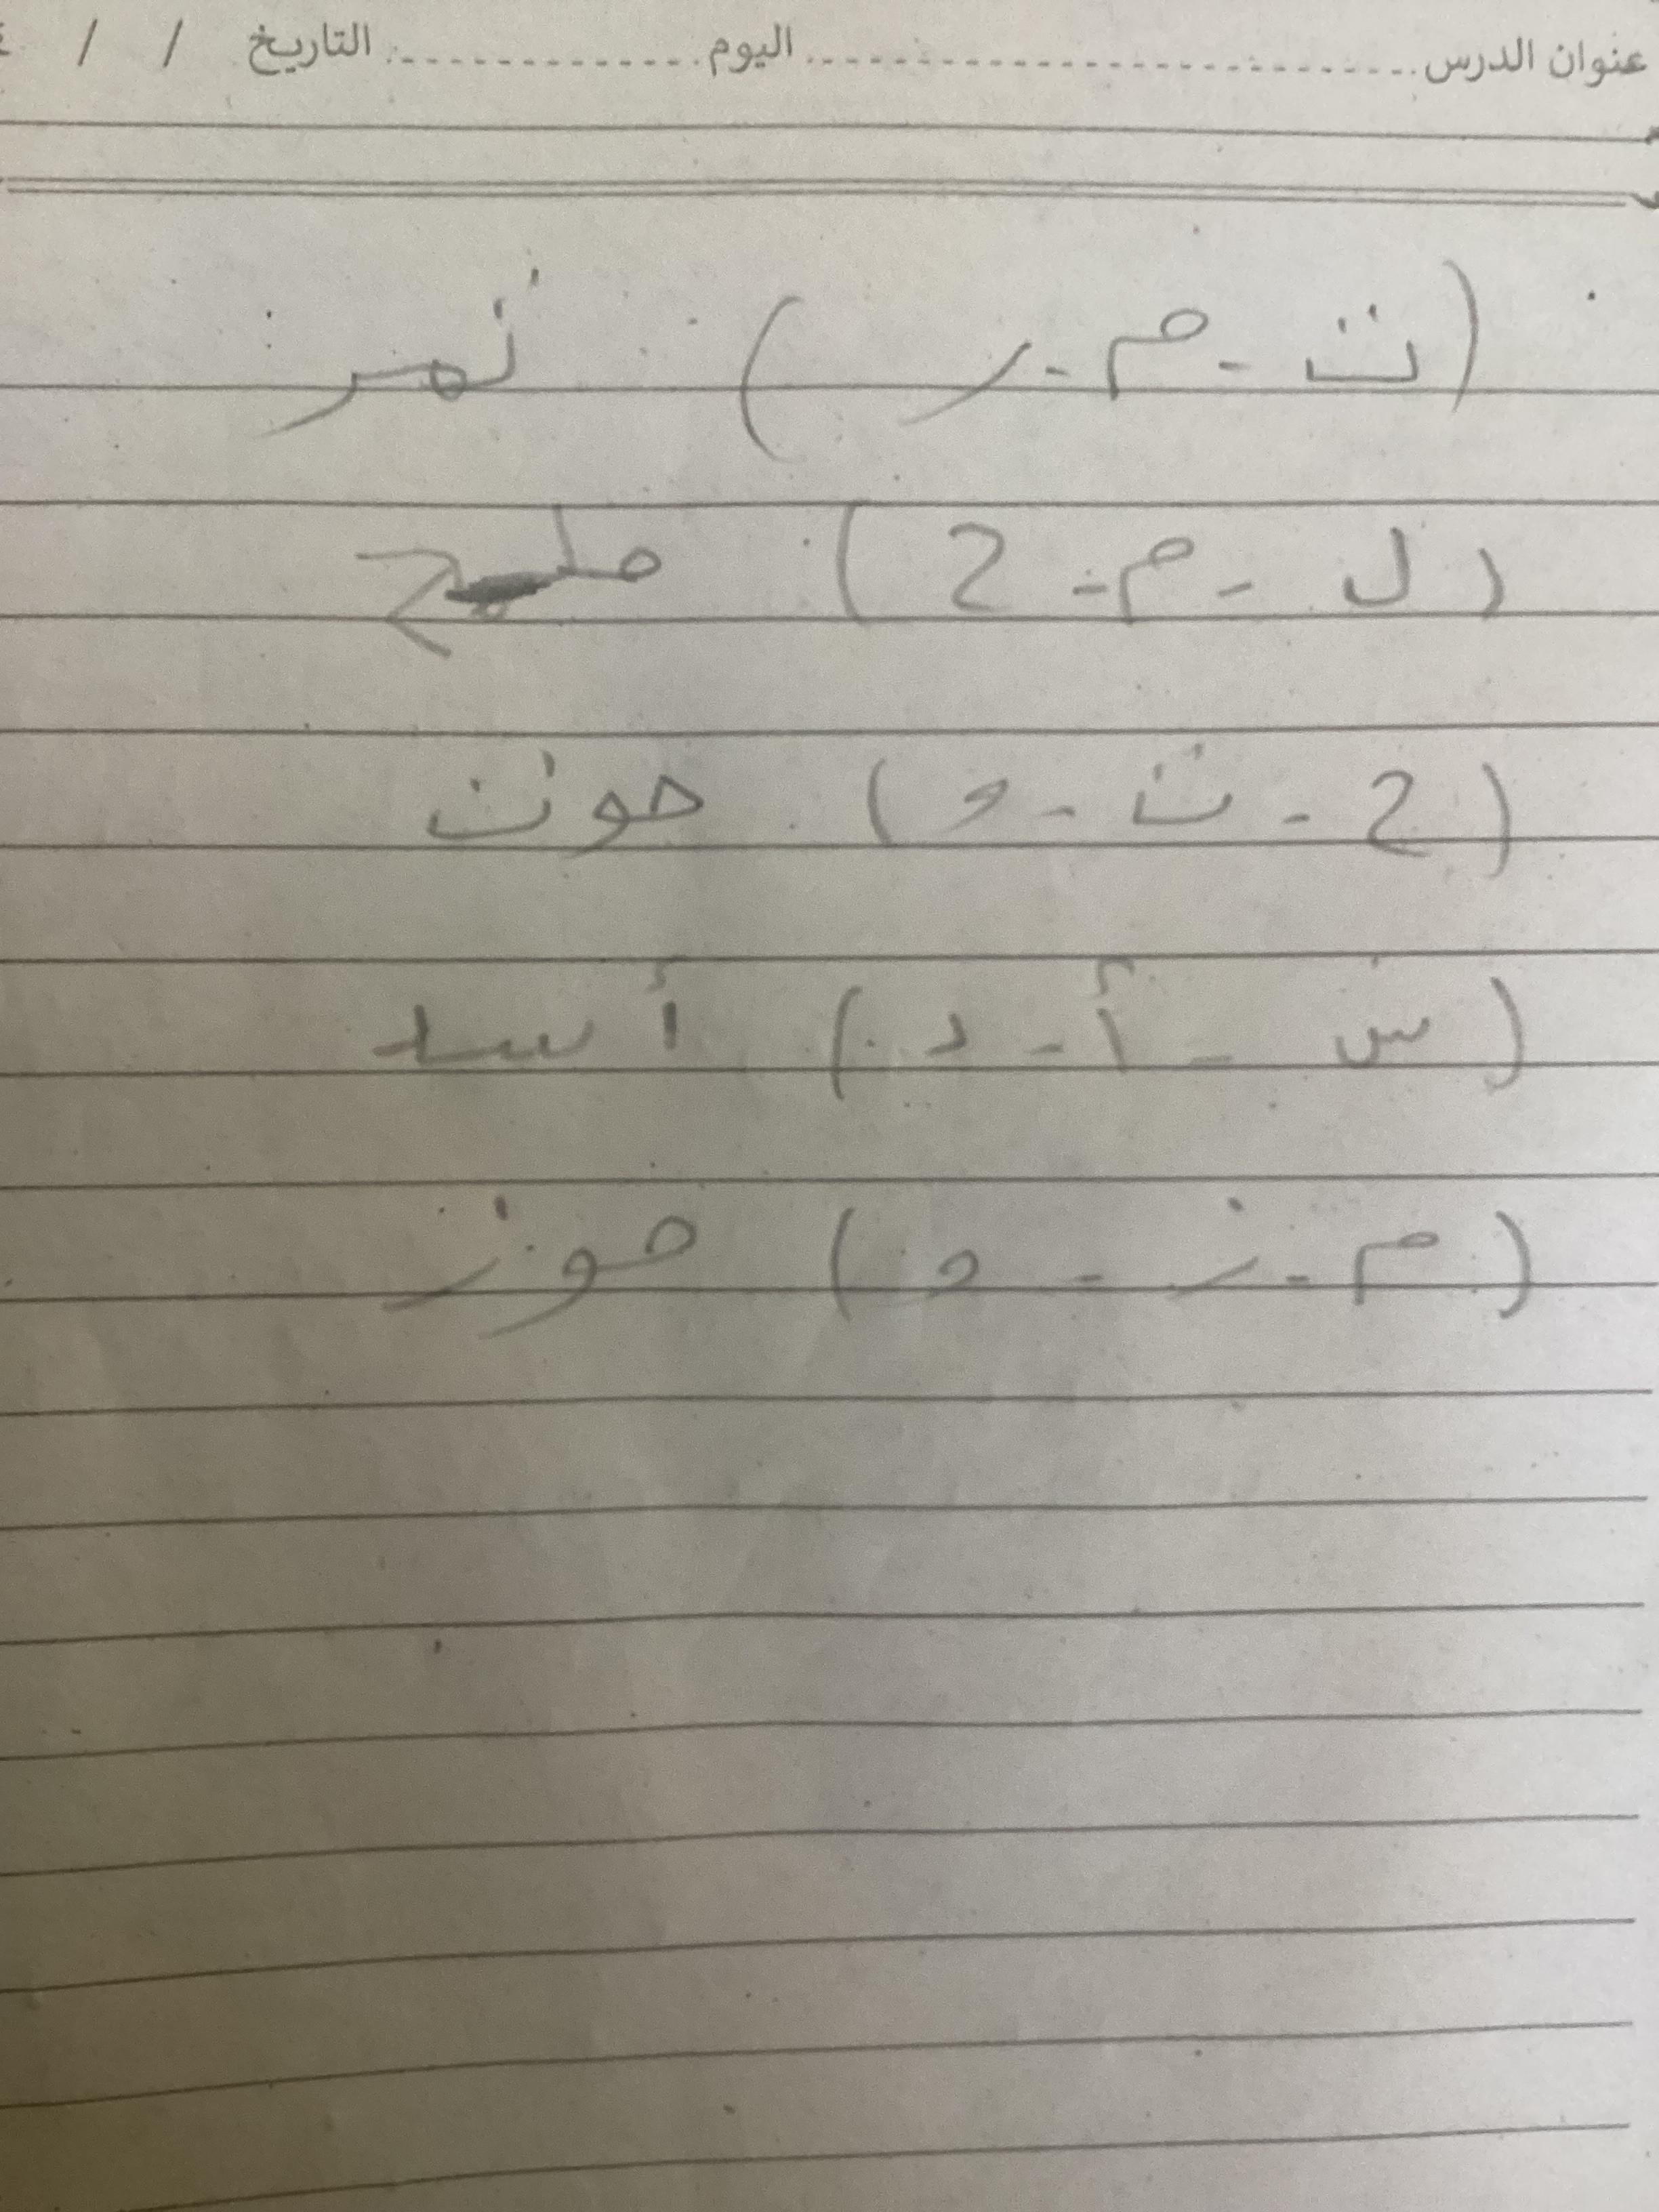 عنوان الدرس ........................ اليوم ............ التاريخ / /
(ت - م - ر) تمر
(ل - م - ح) ملح
(ح - ت - و) حوت
(س - أ - د) أسد
(م - ز - و) موز